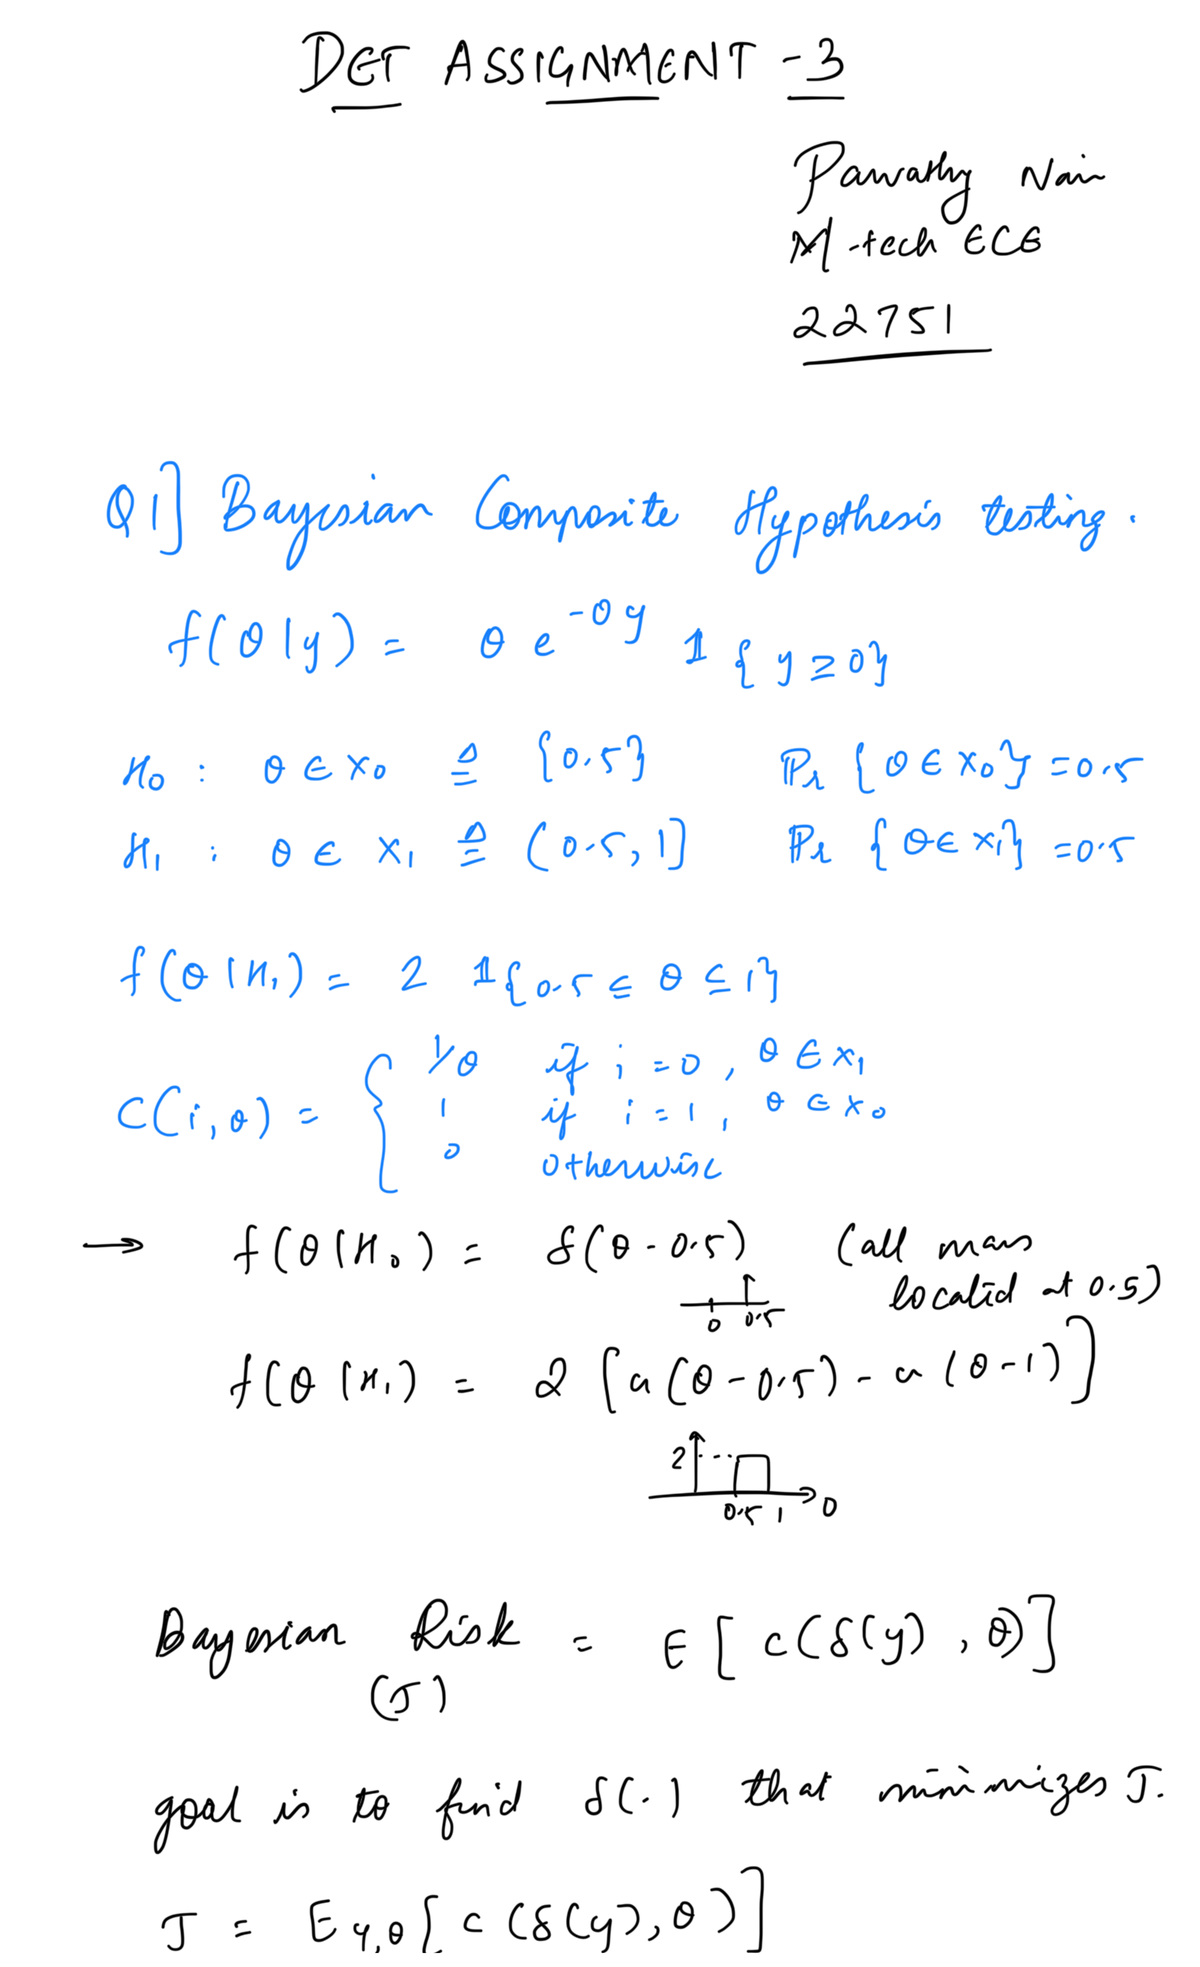 DET ASSIGNMENT -3
Parvathy Nair
M-tech ECE
22751
Q1] Bayesian Composite Hypothesis testing.
f(θ|y) = θ e^{-θy} 𝟙{y≥0}
H₀ : θ ∈ X₀ ≜ {0.5} Pr {θ ∈ X₀} = 0.5
H₁ : θ ∈ X₁ ≜ (0.5, 1] Pr {θ ∈ X₁} = 0.5
f(θ|H₁) = 2 𝟙{0.5 ≤ θ ≤ 1}
C(i,θ) = { 1/θ if i = 0, θ ∈ X₁
1 if i = 1, θ ∈ X₀
0 otherwise
→ f(θ|H₀) = δ(θ - 0.5) (all mass
located at 0.5)
0 0.5
f(θ|H₁) = 2 [u(θ-0.5) - u(θ-1)]
2
0.5 1 θ
Bayesian Risk = E[c(δ(y), θ)]
(J)
goal is to find δ(.) that minimizes J.
J = E_{Y,θ}[c(δ(y), θ)]